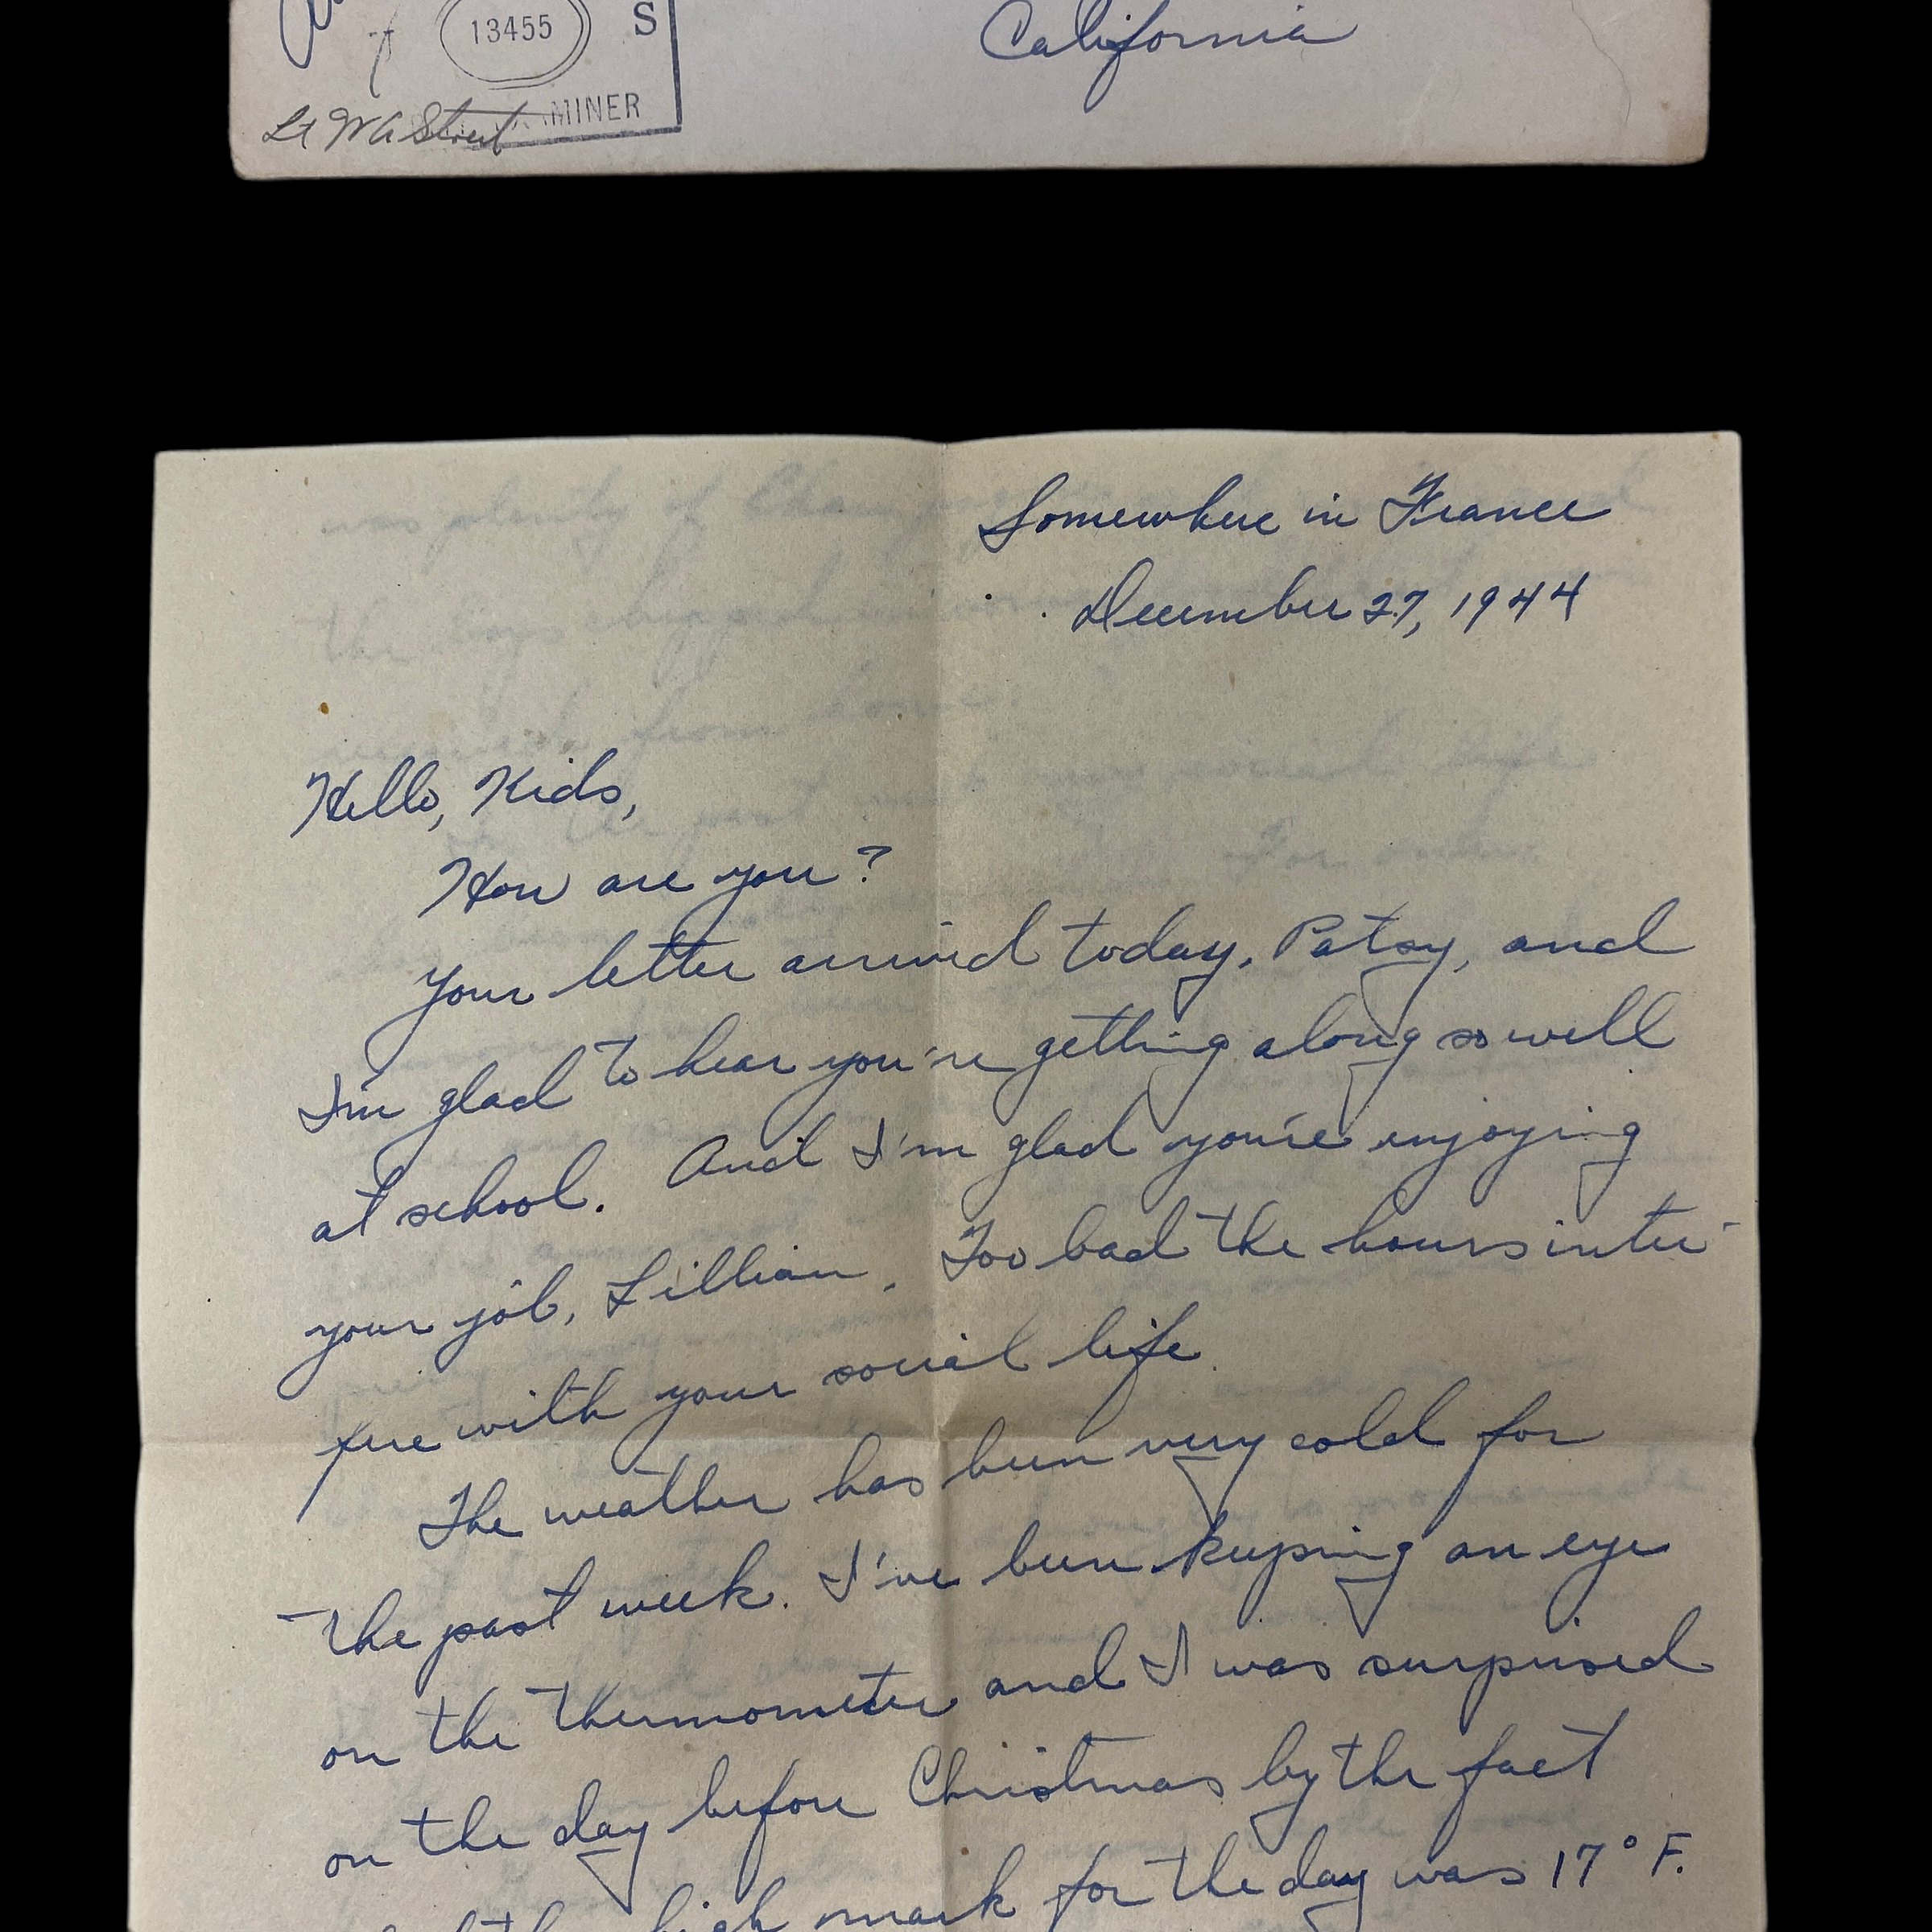 13455
S
California
MINER
Lt WA Street
Somewhere in France
December 27, 1944
Hello, Kids,
How are you?
Your letter arrived today, Patsy, and
I'm glad to hear you're getting along so well
at school. And I'm glad you're enjoying
your job, Lillian. Too bad the hours inter-
fere with your social life.
The weather has been very cold for
the past week. I've been keeping an eye
on the thermometer and I was surprised
on the day before Christmas by the fact
high mark for the day was 17° F.